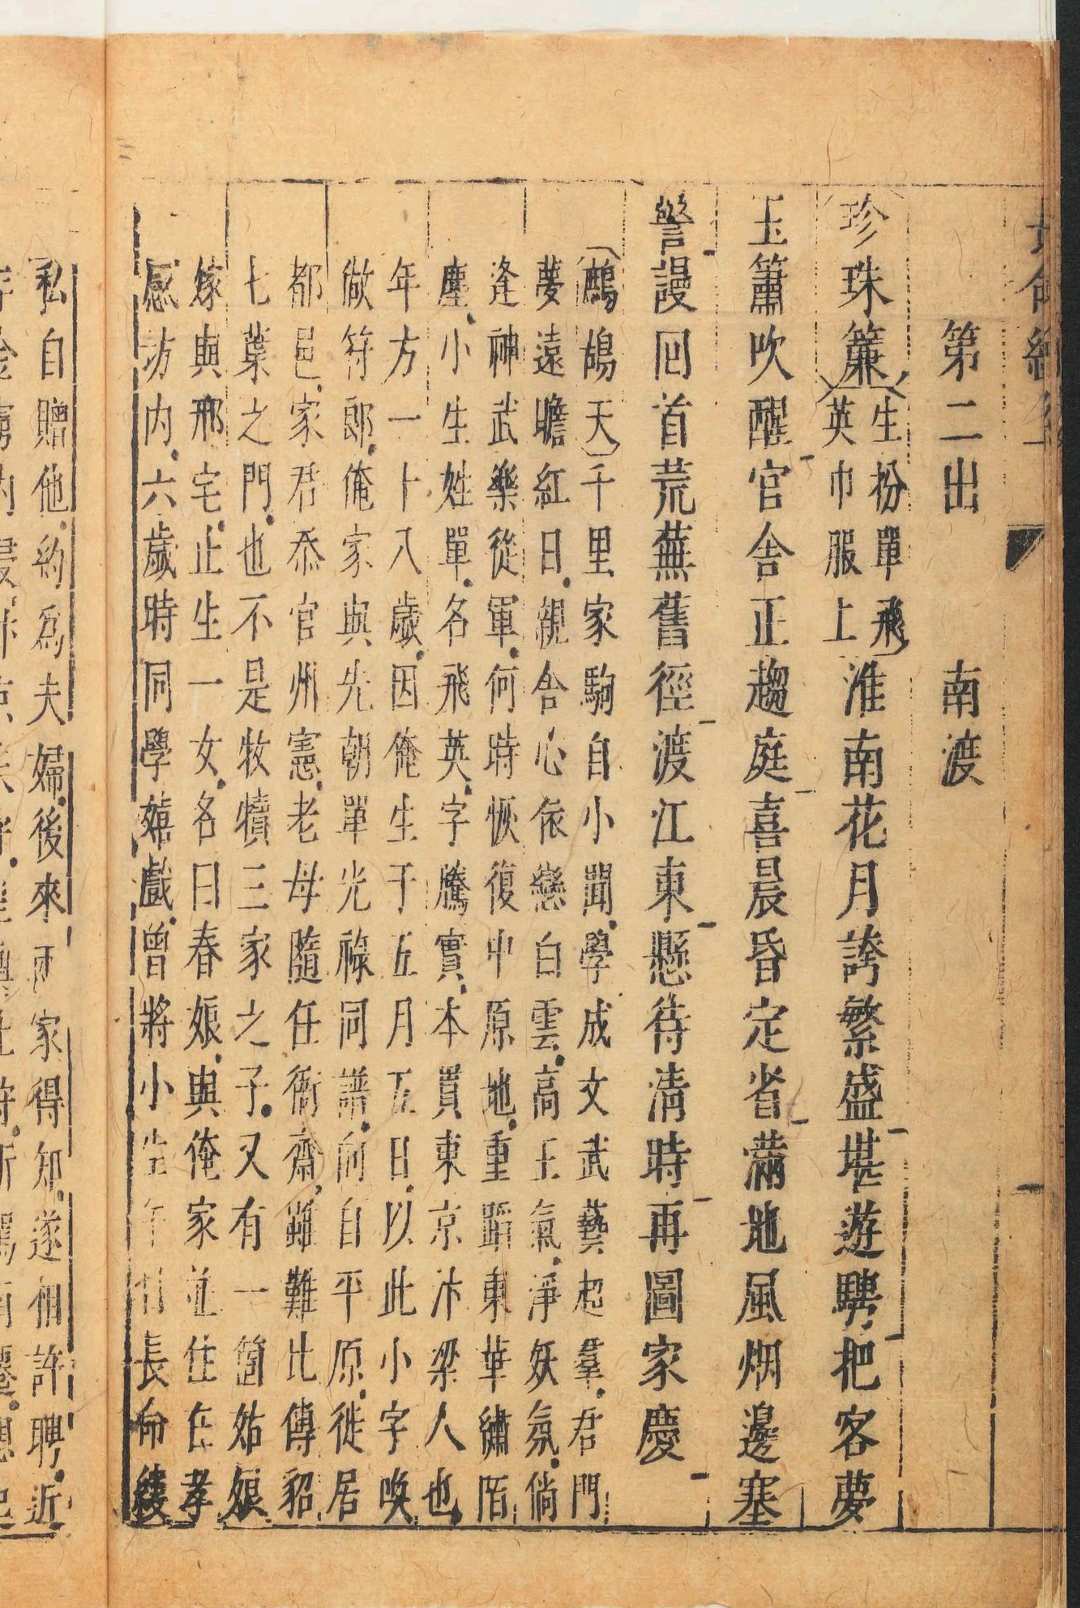 長命縷
第二出　南渡
珍珠簾生扮單飛英巾服上淮南花月誇繁盛堪遊騁把客夢
玉簫吹醒官舍正趨庭喜晨昏定省滿地風烟邊塞
警謾回首荒蕪舊徑渡江東懸待清時再圖家慶
（鷓鴣天）千里家駒自小聞學成文武藝超羣君門
夢遠瞻紅日親舍心依戀白雲高王氣淨妖氛倘
逢神武樂從軍何時恢復中原地重蹈東華繡陌
塵小生姓單名飛英字騰實本貫東京汴梁人也
年方一十八歲因俺生于五月五日以此小字喚
做符郎俺家與先朝單光祿同譜向自平原徙居
都邑家君忝官州憲老母隨任衙齋雖難比傳貂
七葉之門也不是牧犢三家之子又有一箇姑娘
嫁與邢宅止生一女名曰春娘與俺家並住在孝
感坊內六歲時同學嬉戲曾將小生年長命縷
私自贈他約爲夫婦後來兩家得知遂相許聘近